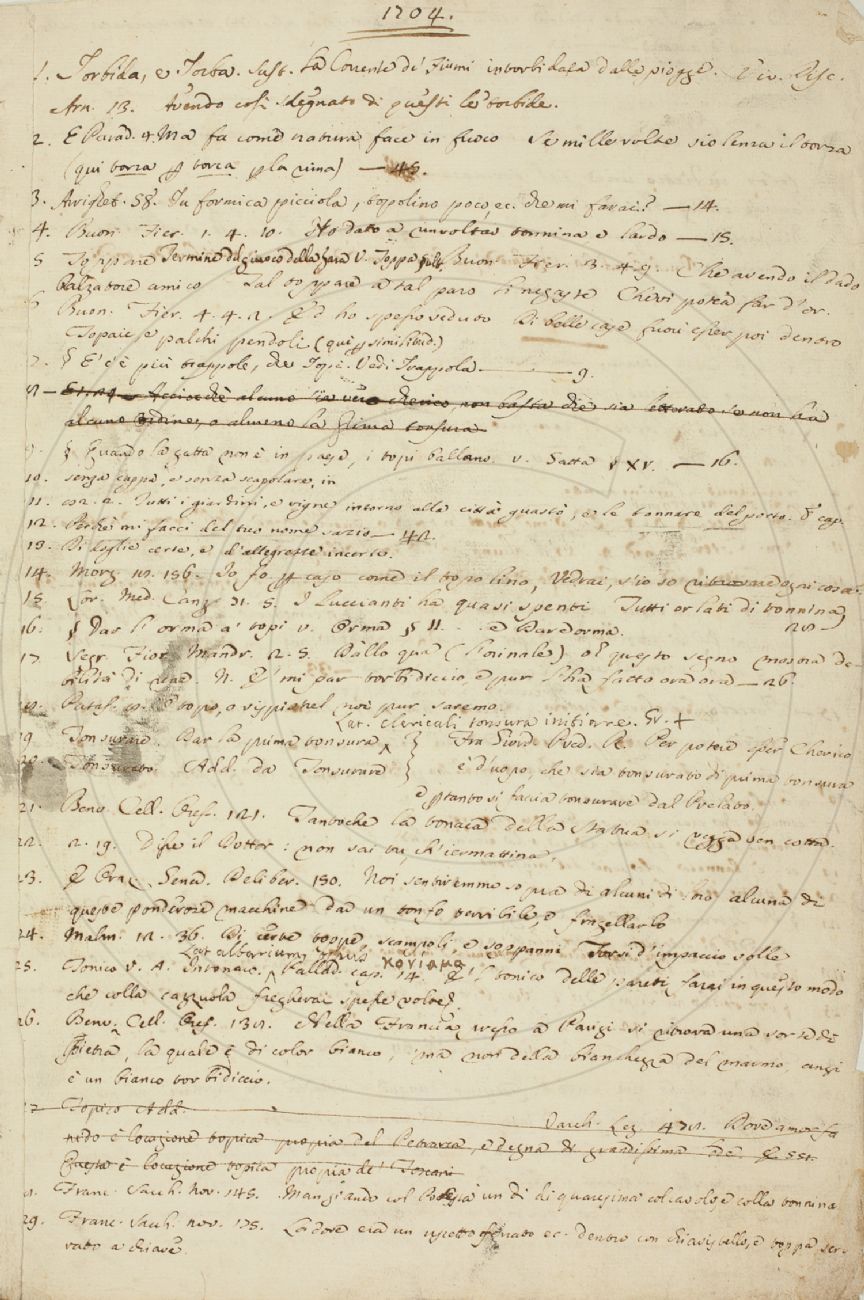 1704.
1. Torbida, e Torba. Sust. La Corrente de' Fiumi intorbidata dalle piogge. Viv. Disc.
Arn. 13. Avendo così sdegnato di questi le torbide.
2. E Parad. 4. Ma fa come natura face in fuoco Se mille volte violenza il torza
(qui torza p torca p la rima) — 45.
3. Arrighet. 58. Tu formica picciola, topolino poco, ec. che mi farai? — 14.
4. Buon. Fier. 1. 4. 10. Ho dato a un volta tonnina e lardo — 15.
5 Termine del giuoco della zara V. Toppa Buon. Fier. 3. 4. 9. Che avendo il dado
balzatore amico Tal toppare a tal paro si negaste Ch'ei potea far d'or.
6 Buon. Fier. 4. 4. 2. E ho spesso veduto Di belle case fuori esser poi dentro
Topaie e palchi pendoli (qui p similitud.)
7. § E' c'è più trappole, che Topi. Vedi Trappola — 9.
8 — Acciocchè alcuno sia vero cherico, non basta che sia letterato se non ha
alcuno ordine, o almeno la prima tonsura
9. § Quando la gatta non è in paese, i topi ballano. v. Gatta § XV. — 16.
10. senza cappa, e senza scapolare, in
11. 2. Tutti i giardini, e vigne intorno alla città guastò, e le tonnare del porto. § cap.
12. Perchè mi facci del tuo nome sazio — 42.
13. Di doglie certe, e d'allegrezze incerte.
14. Morg. 18. 156. Io fo p caso come il topolino, Vedrai, s'io so ritrovare ogni cosa.
15. Lor. Med. Canz. 31. 5. I Luccianti ha quasi spenti Tutti or lati di tonnina)
16. § Dar l'orma a' topi v. Orma § 11. e Dare orma. 28
17 Segr. Fior. Mandr. 2. 5. Dallo qua (l'orinale) Oh questo segno mostra de-
bilità di rene. N. E' mi par torbidiccio, e pur l'ha fatto ora ora — 26.
18. Pataf. 9. È topo, o vippistrel noi pur saremo.
Lat. clericali tonsura initiare. Gr. +
19 Tonsurare. Dar la prima tonsura } Fra Giord. Pred. R. Per potere esser Cherico
20. Tonsurato. Add. da Tonsurare } è d'uopo, che sia tonsurato di prima tonsura
e ptanto si faccia tonsurare dal Prelato.
21. Benv. Cell. Oref. 121. Tantochè la tonaca della statua si vegga ben cotta.
22. 2. 19. Disse il Dottor: non sai tu ch'iermattina,
23. E Oraz. Gened. Deliber. 180. Noi sentiremmo sopra di alcuni di loro alcuna di
queste ponderose macchine dar un tonfo terribile, e fragellarlo
24. Malm. 12. 36. Di certe toppe scampoli, e soppanni Forsi d'impaccio volle
Lat. albarium κονίαμα
25. Tonico v. A. Intonaco. Pallad. cap. 14. E 'l tonico delle pareti farai in questo modo
che colla cazzuola fregherai spesse volte.
26. Benv. Cell. Oref. 138. Nella Francia presso a Parigi si ritrova una sorte di
pietra, la quale è di color bianco, ma non della bianchezza del marmo, anzi
è un bianco torbidiccio.
27 Topico Add. Varch. Lez. 478. Dove amor fa
nido è locazione topica propria del Petrarca, e degna di grandissima lode. E 551.
Questa è locazione topica propria de' Toscani
Franc. Sacch. Nov. 145. Mangiando col Podestà un dì di quaresima col cavolo e colla tonnina
29. Franc. Sacch. nov. 178. Ladove era un ferrato ec. dentro con chiavistello, e toppa, ser-
rato a chiave.